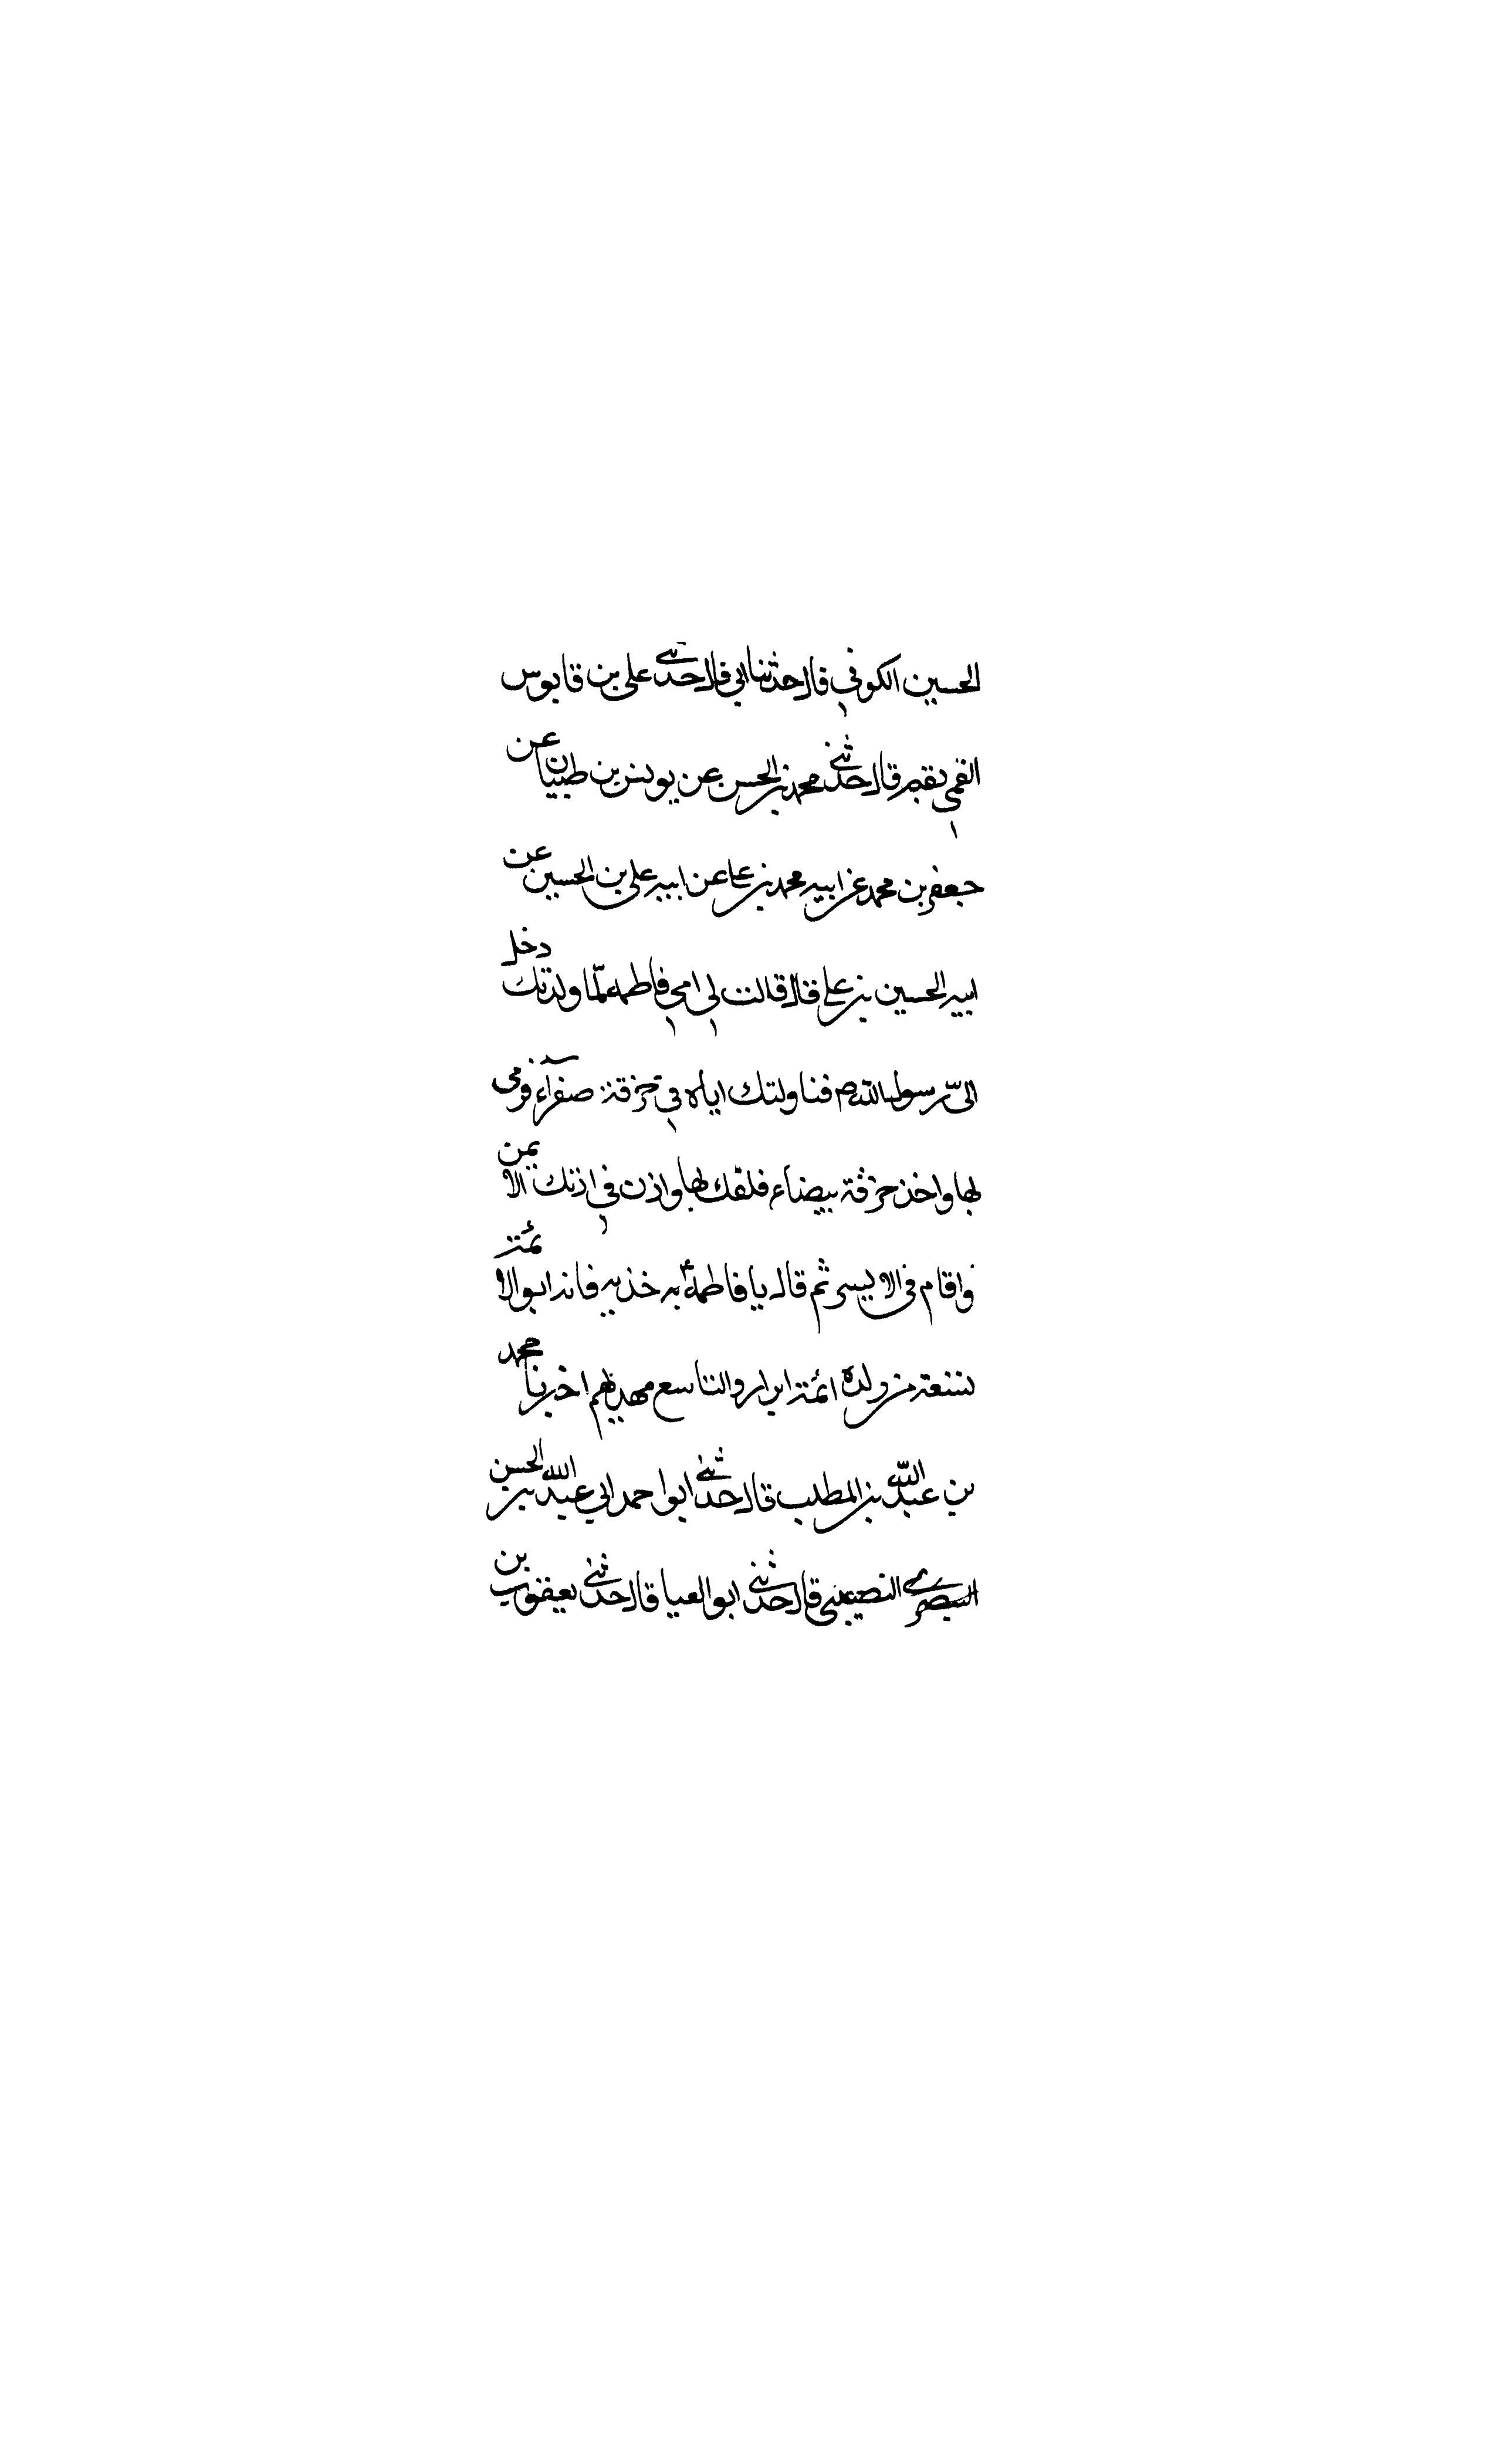 الحسين الكوفي قال حدثنا ابي قال حدثني علي بن قابوس
القمي بقم قال حدثني محمد بن الحسن عن يونس بن ظبيان عن
جعفر بن محمد عن ابيه محمد بن علي عن ابيه علي بن الحسين عن
ابيه الحسين بن علي قال قالت لي امي فاطمة لمّا ولدتك دخل
اليّ رسول الله ص فناولتك اياه في خرقة صفرآء فرمى
بها واخذ خرقة بيضاء فلفّك بها واذن في اذنك الايمن
واقام في الايسر ثم قال يا فاطمة خذيه فانه ابو الائمة
تسعة من ولده ائمة ابرار والتاسع مهديهم اخبرنا محمد
بن عبد الله بن المطلب قال حدثني ابو احمد ابي عبد الله بن الحسن
النصيبني قال حدثني ابو العيا قال حدثني يعقوب بن